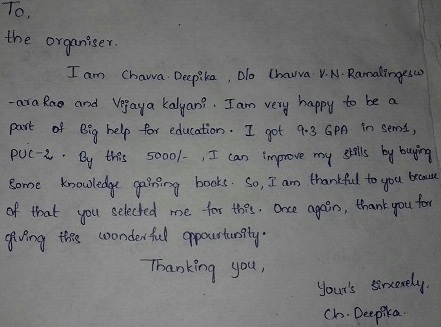 To,
the organiser.
I am Chavva. Deepika, D/o Chavva. V.N. Ramalingesw
-ara Rao and Vijaya kalyani. I am very happy to be a
part of Big help for education. I got 9.3 GPA in sem1,
PUC-2. By this 5000/-, I can improve my skills by buying
Some knowledge gaining books. So, I am thankful to you because
of that you selected me for this. Once again, thank you for
giving this wonderful oppourtunity.
Thanking you,
Your's Sincerely.
Ch. Deepika.